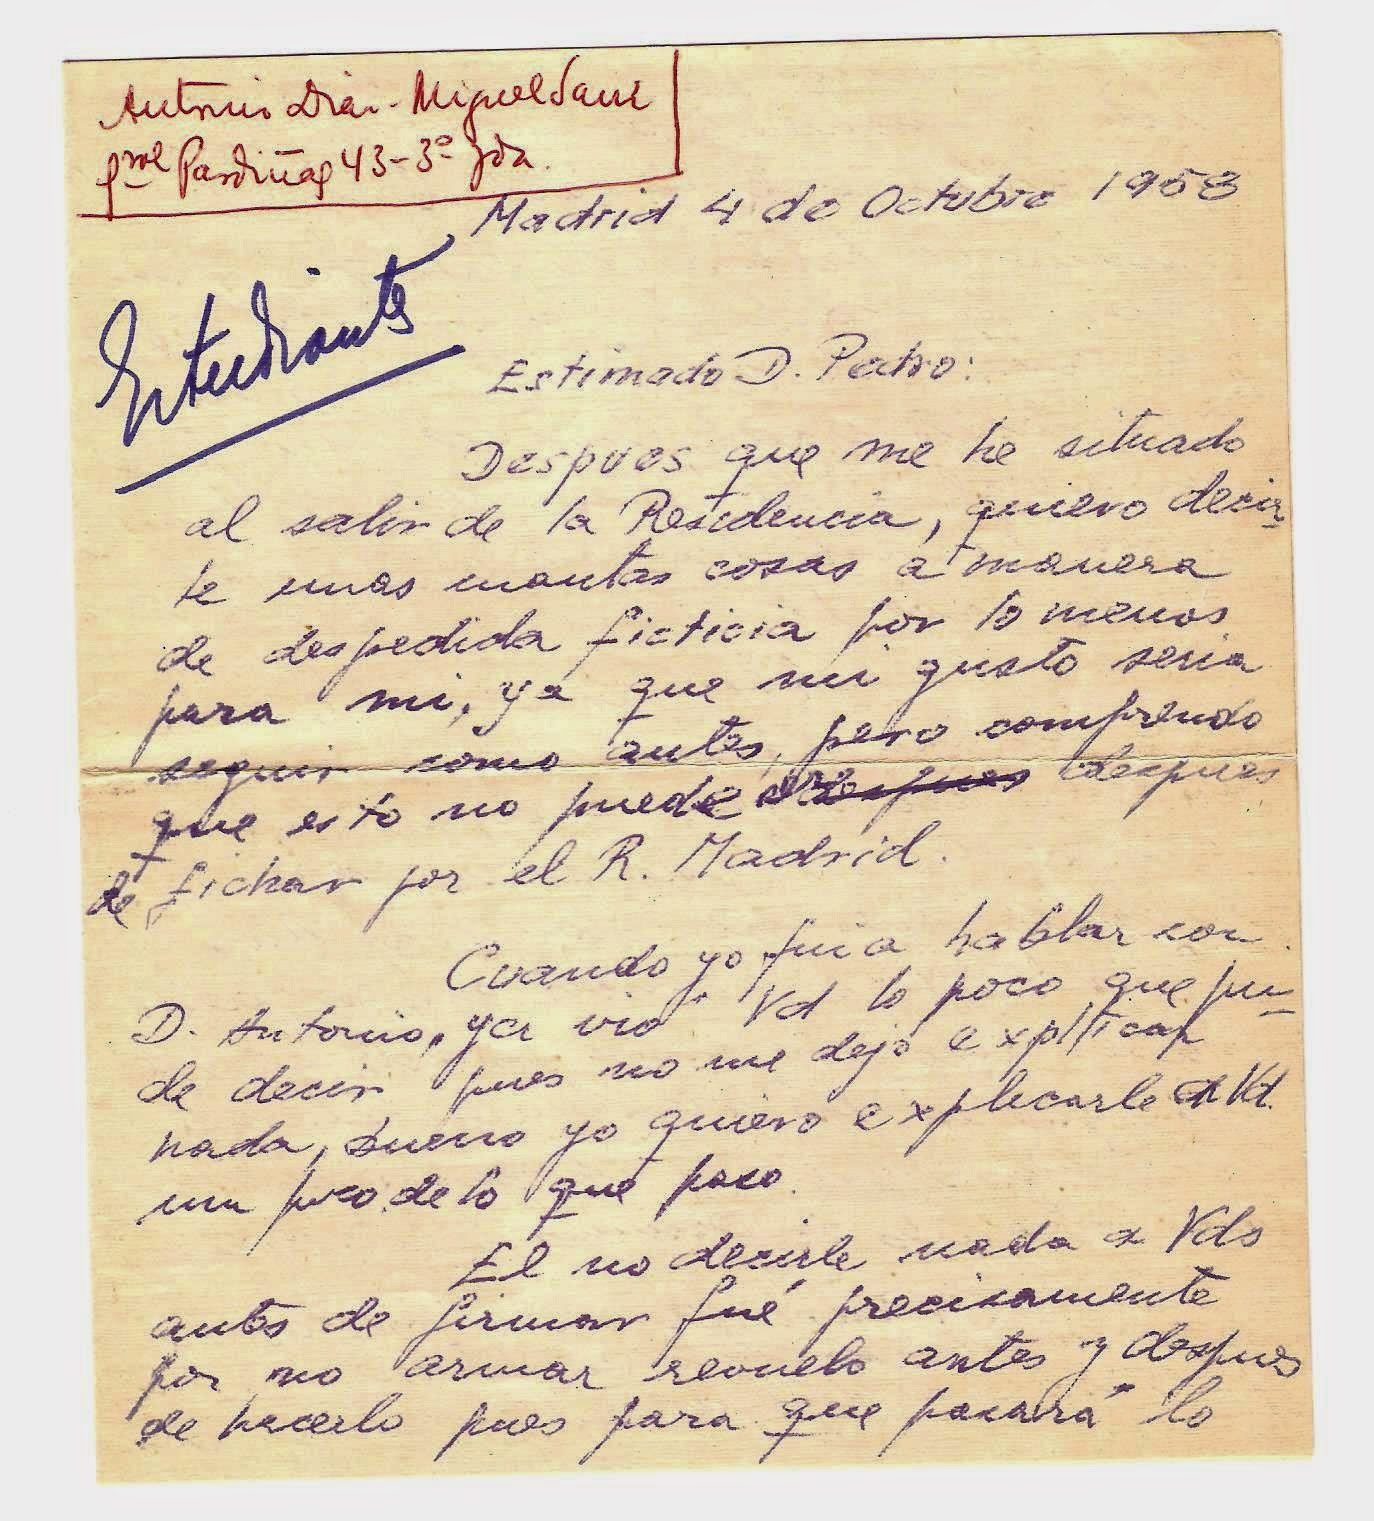 Antonio Diaz-Miguel Sanz
Gral Pardiñas 43-3º Izda.
Madrid 4 de Octubre 1958
Estudiantes
Estimado D. Pedro:
Despues que me he situado
al salir de la Residencia, quiero decir-
le unas cuantas cosas a manera
de despedida ficticia por lo menos
para mi, ya que mi gusto seria
seguir como antes, pero comprendo
que esto no puede ser despues
de fichar por el R. Madrid.
Cuando yo fui a hablar con
D. Antonio, ya vio Vd lo poco que pu-
de decir, pues no me dejó explicar
nada, bueno yo quiero explicarle a Vd.
un poco de lo que paso.
El no decirle nada a Vds
antes de firmar fué precisamente
por no armar revuelo antes y despues
de hacerlo pues para que pasará lo